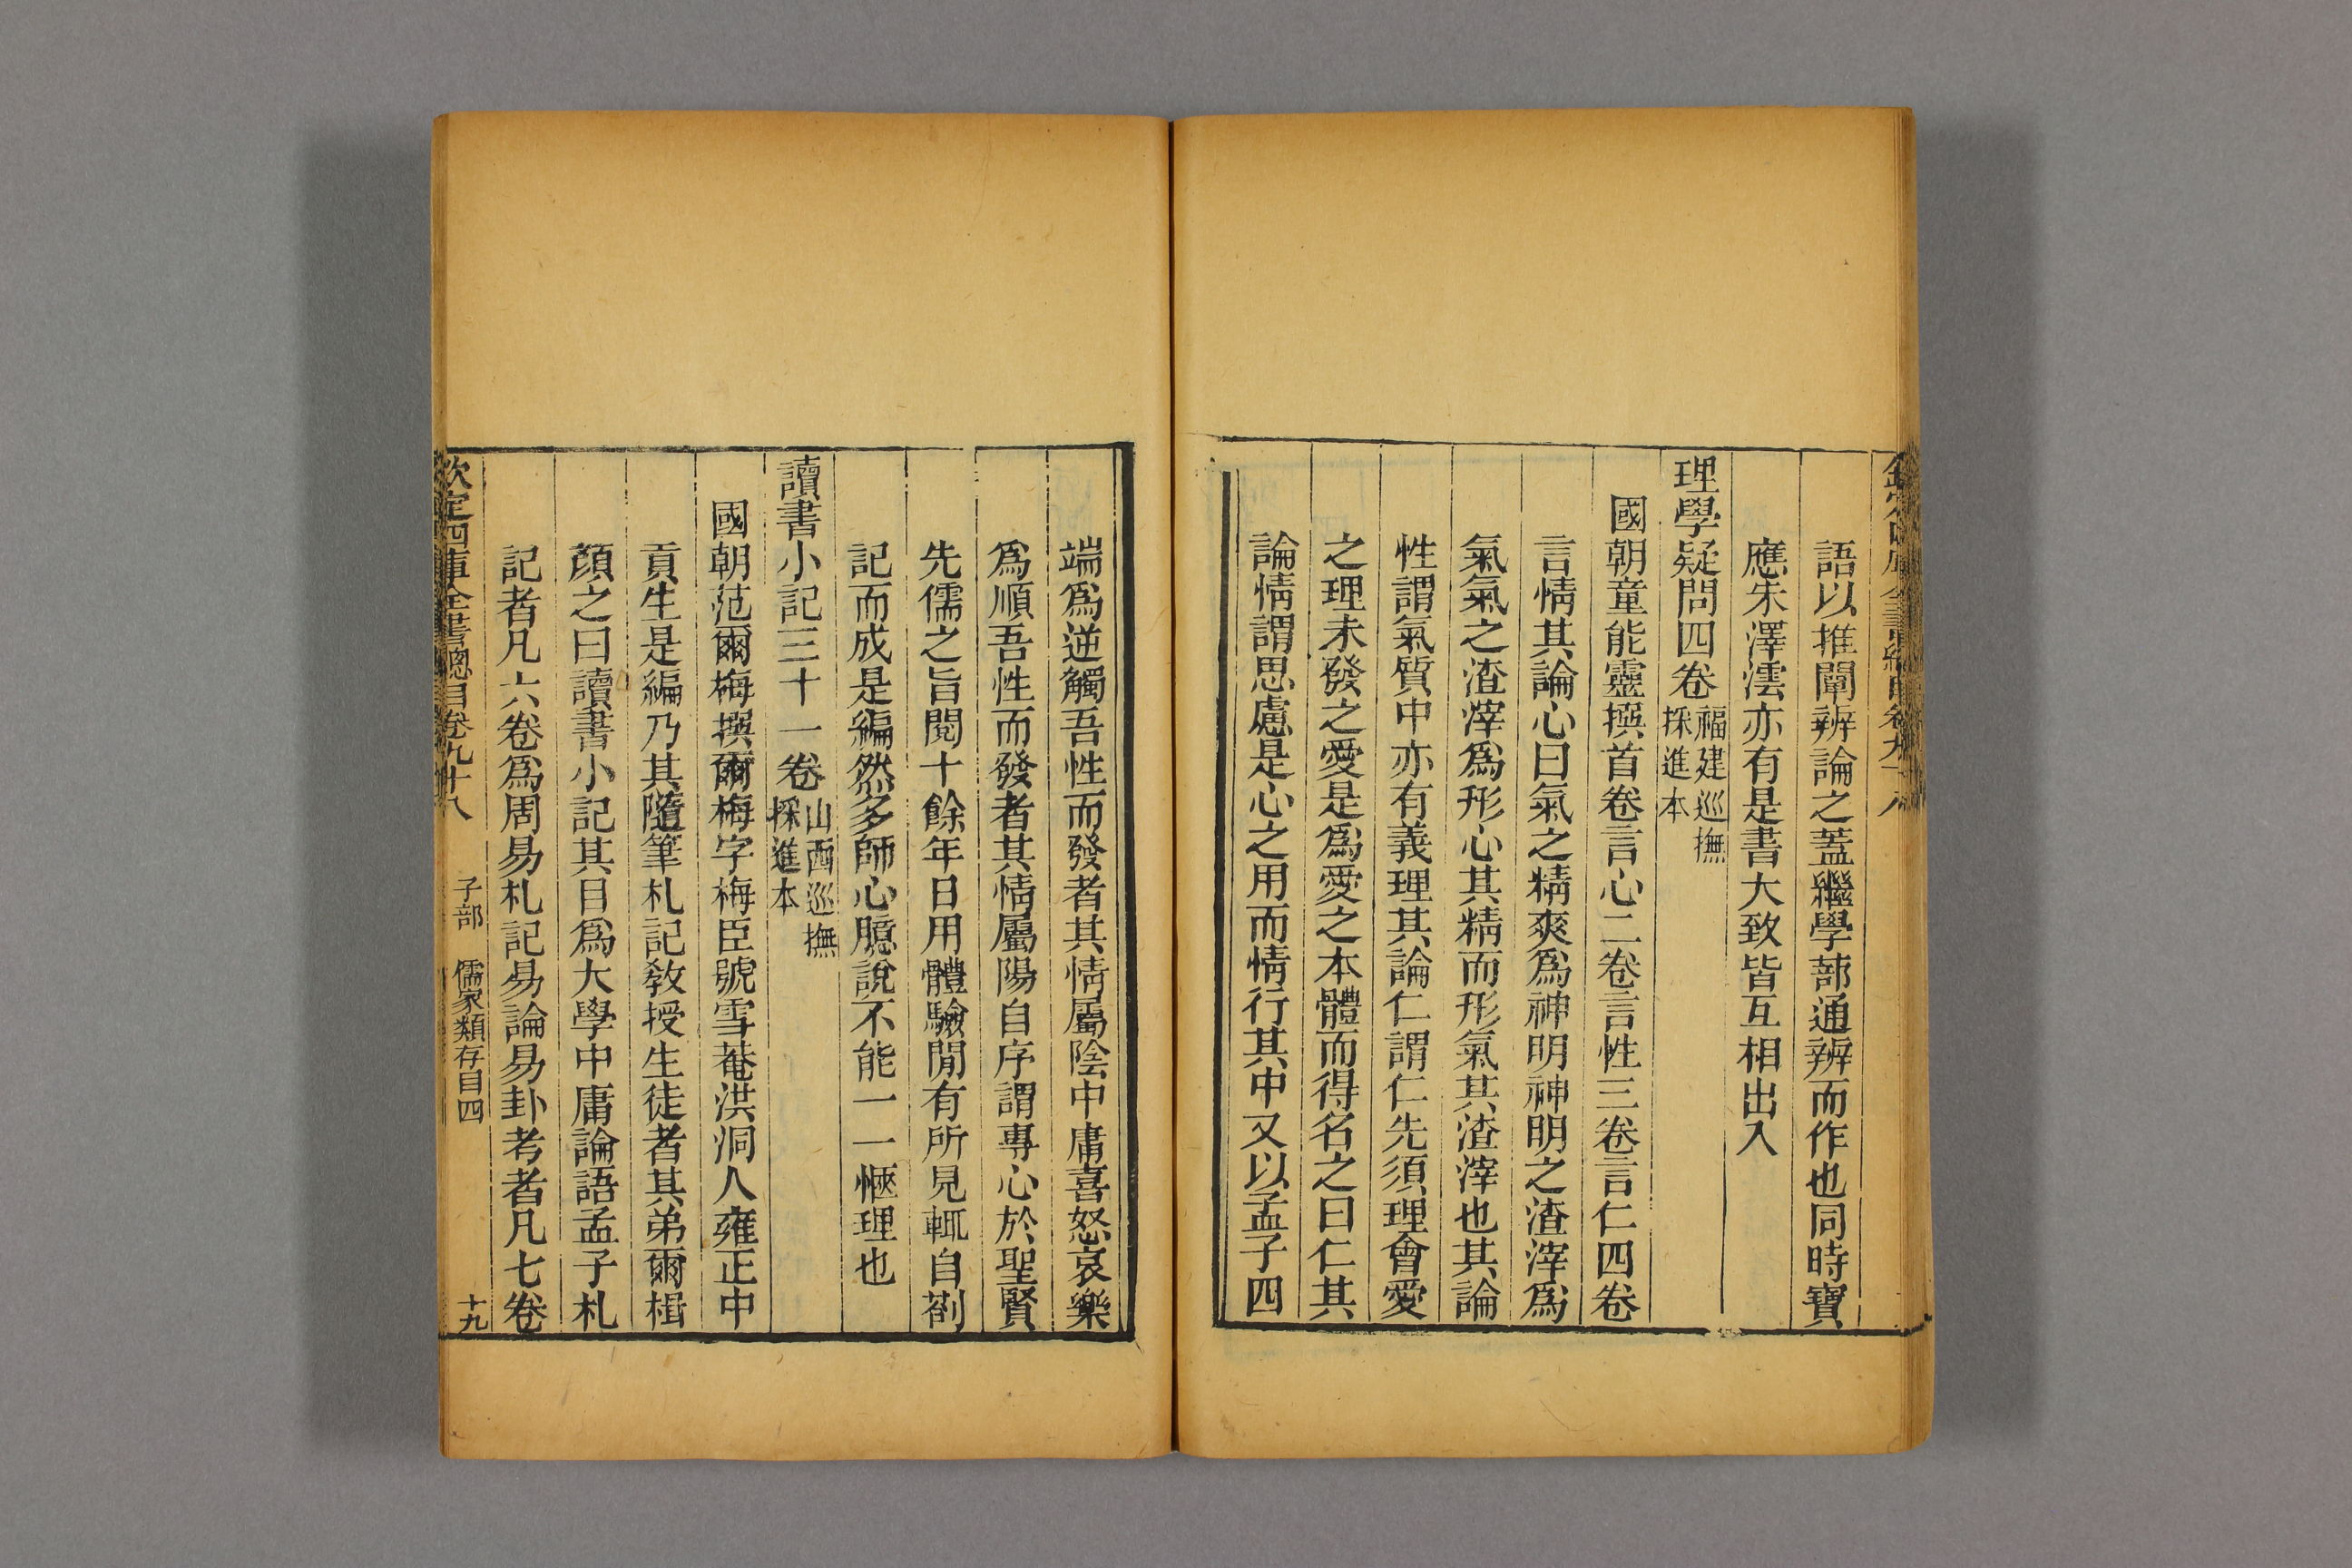 語以推闡辨論之蓋繼學蔀通辨而作也同時寶
應朱澤澐亦有是書大致皆互相出入
理學疑問四卷福建巡撫採進本
國朝童能靈撰首卷言心二卷言性三卷言仁四卷
言情其論心曰氣之精爽爲神明神明之渣滓爲
氣氣之渣滓爲形心其精而形氣其渣滓也其論
性謂氣質中亦有義理其論仁謂仁先須理會愛
之理未發之愛是爲愛之本體而得名之曰仁其
論情謂思慮是心之用而情行其中又以孟子四
端爲逆觸吾性而發者其情屬陰中庸喜怒哀樂
爲順吾性而發者其情屬陽自序謂專心於聖賢
先儒之旨閱十餘年日用體驗閒有所見輒自劄
記而成是編然多師心臆說不能一一愜理也
讀書小記三十一卷山西巡撫採進本
國朝范爾梅撰爾梅字梅臣號雪菴洪洞人雍正中
貢生是編乃其隨筆札記敎授生徒者其弟爾楫
顏之曰讀書小記其目爲大學中庸論語孟子札
記者凡六卷爲周易札記易論易卦考者凡七卷
欽定四庫全書總目卷九十八 子部 儒家類存目四 十九